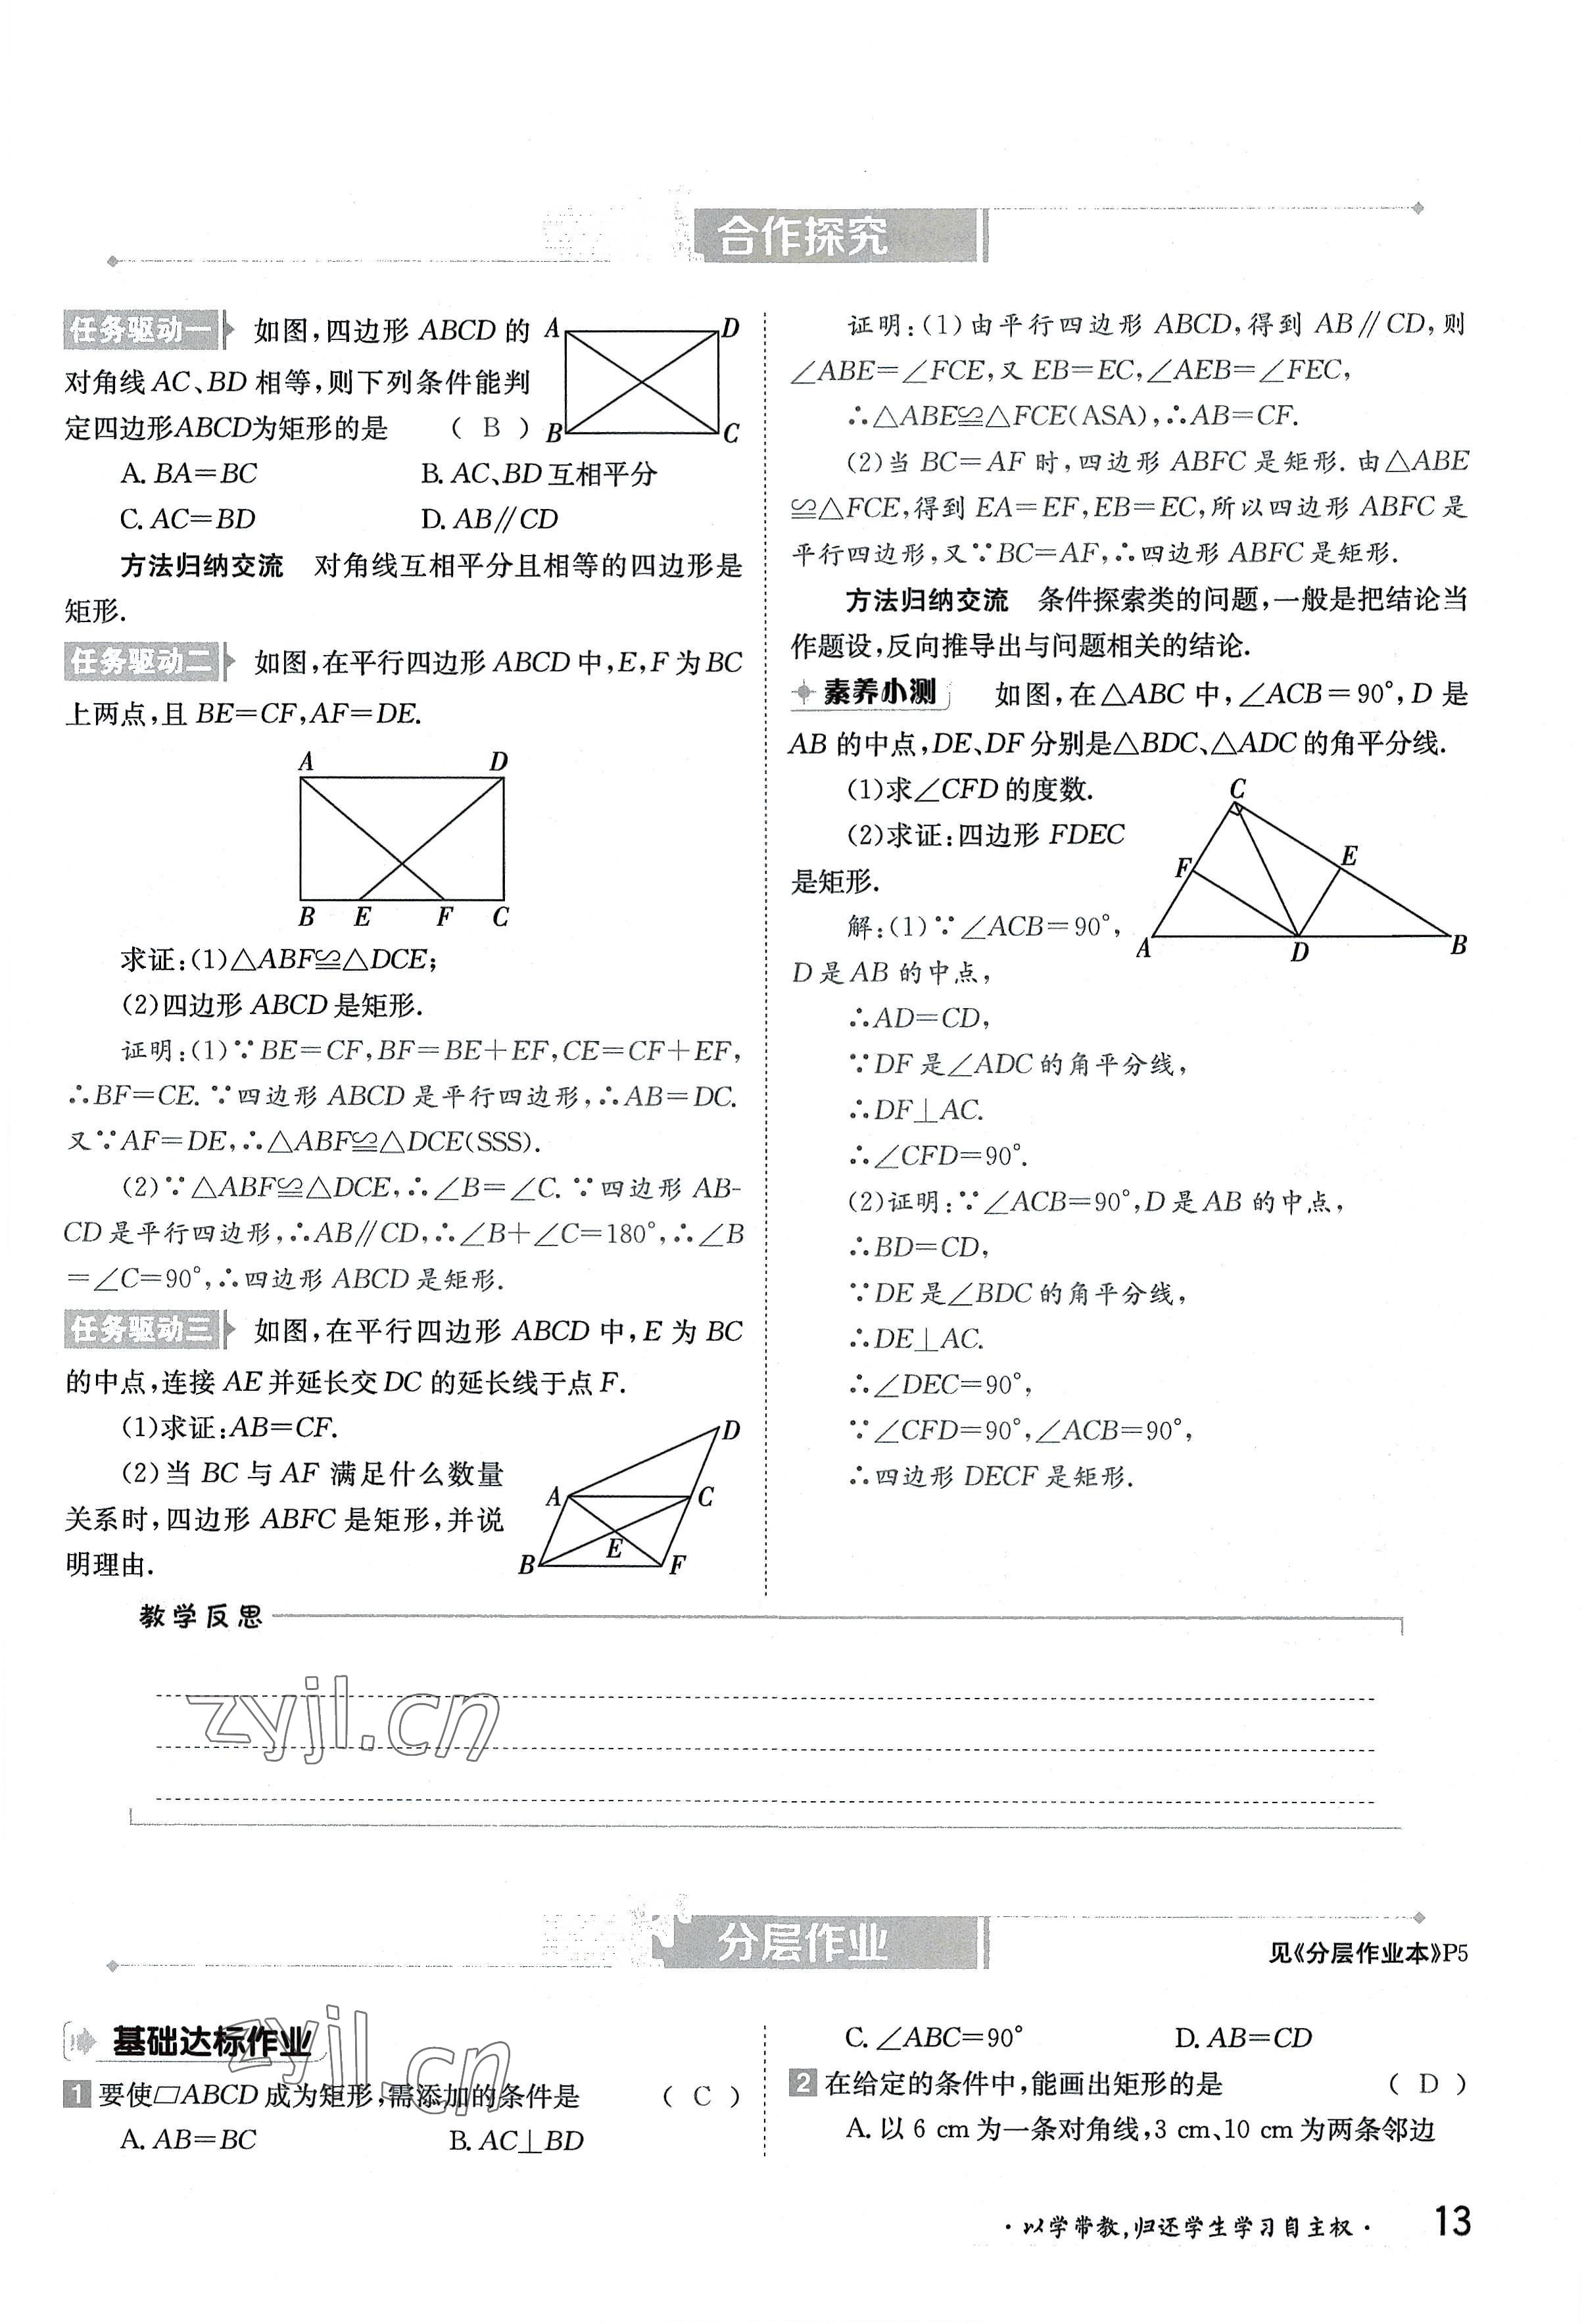 合作探究
任务驱动一 如图,四边形 ABCD 的
对角线 AC、BD 相等,则下列条件能判
定四边形ABCD为矩形的是 ( B )
A. BA=BC B. AC、BD 互相平分
C. AC=BD D. AB∥CD
A D
B C
方法归纳交流 对角线互相平分且相等的四边形是
矩形.
任务驱动二 如图,在平行四边形 ABCD 中,E,F 为 BC
上两点,且 BE=CF,AF=DE.
A D
B E F C
求证:(1)△ABF≌△DCE;
(2)四边形 ABCD 是矩形.
证明:(1)∵BE=CF,BF=BE+EF,CE=CF+EF,
∴BF=CE. ∵四边形 ABCD 是平行四边形,∴AB=DC.
又∵AF=DE,∴△ABF≌△DCE(SSS).
(2)∵△ABF≌△DCE,∴∠B=∠C. ∵四边形 AB-
CD 是平行四边形,∴AB∥CD,∴∠B+∠C=180°,∴∠B
=∠C=90°,∴四边形 ABCD 是矩形.
任务驱动三 如图,在平行四边形 ABCD 中,E 为 BC
的中点,连接 AE 并延长交 DC 的延长线于点 F.
(1)求证:AB=CF.
(2)当 BC 与 AF 满足什么数量
关系时,四边形 ABFC 是矩形,并说
明理由.
D
A C
E
B F
证明:(1)由平行四边形 ABCD,得到 AB∥CD,则
∠ABE=∠FCE,又 EB=EC,∠AEB=∠FEC,
∴△ABE≌△FCE(ASA),∴AB=CF.
(2)当 BC=AF 时,四边形 ABFC 是矩形. 由△ABE
≌△FCE,得到 EA=EF,EB=EC,所以四边形 ABFC 是
平行四边形,又∵BC=AF,∴四边形 ABFC 是矩形.
方法归纳交流 条件探索类的问题,一般是把结论当
作题设,反向推导出与问题相关的结论.
素养小测 如图,在△ABC 中,∠ACB=90°,D 是
AB 的中点,DE、DF 分别是△BDC、△ADC 的角平分线.
(1)求∠CFD 的度数.
(2)求证:四边形 FDEC
是矩形.
C
F E
A D B
解:(1)∵∠ACB=90°,
D 是 AB 的中点,
∴AD=CD,
∵DF 是∠ADC 的角平分线,
∴DF⊥AC.
∴∠CFD=90°.
(2)证明:∵∠ACB=90°,D 是 AB 的中点,
∴BD=CD,
∵DE 是∠BDC 的角平分线,
∴DE⊥AC.
∴∠DEC=90°,
∵∠CFD=90°,∠ACB=90°,
∴四边形 DECF 是矩形.
教学反思
zyjl.cn
分层作业
见《分层作业本》P5
基础达标作业
zyjl.cn
1 要使▱ABCD 成为矩形,需添加的条件是 ( C )
A. AB=BC B. AC⊥BD
C. ∠ABC=90° D. AB=CD
2 在给定的条件中,能画出矩形的是 ( D )
A. 以 6 cm 为一条对角线,3 cm、10 cm 为两条邻边
·以学带教,归还学生学习自主权· 13